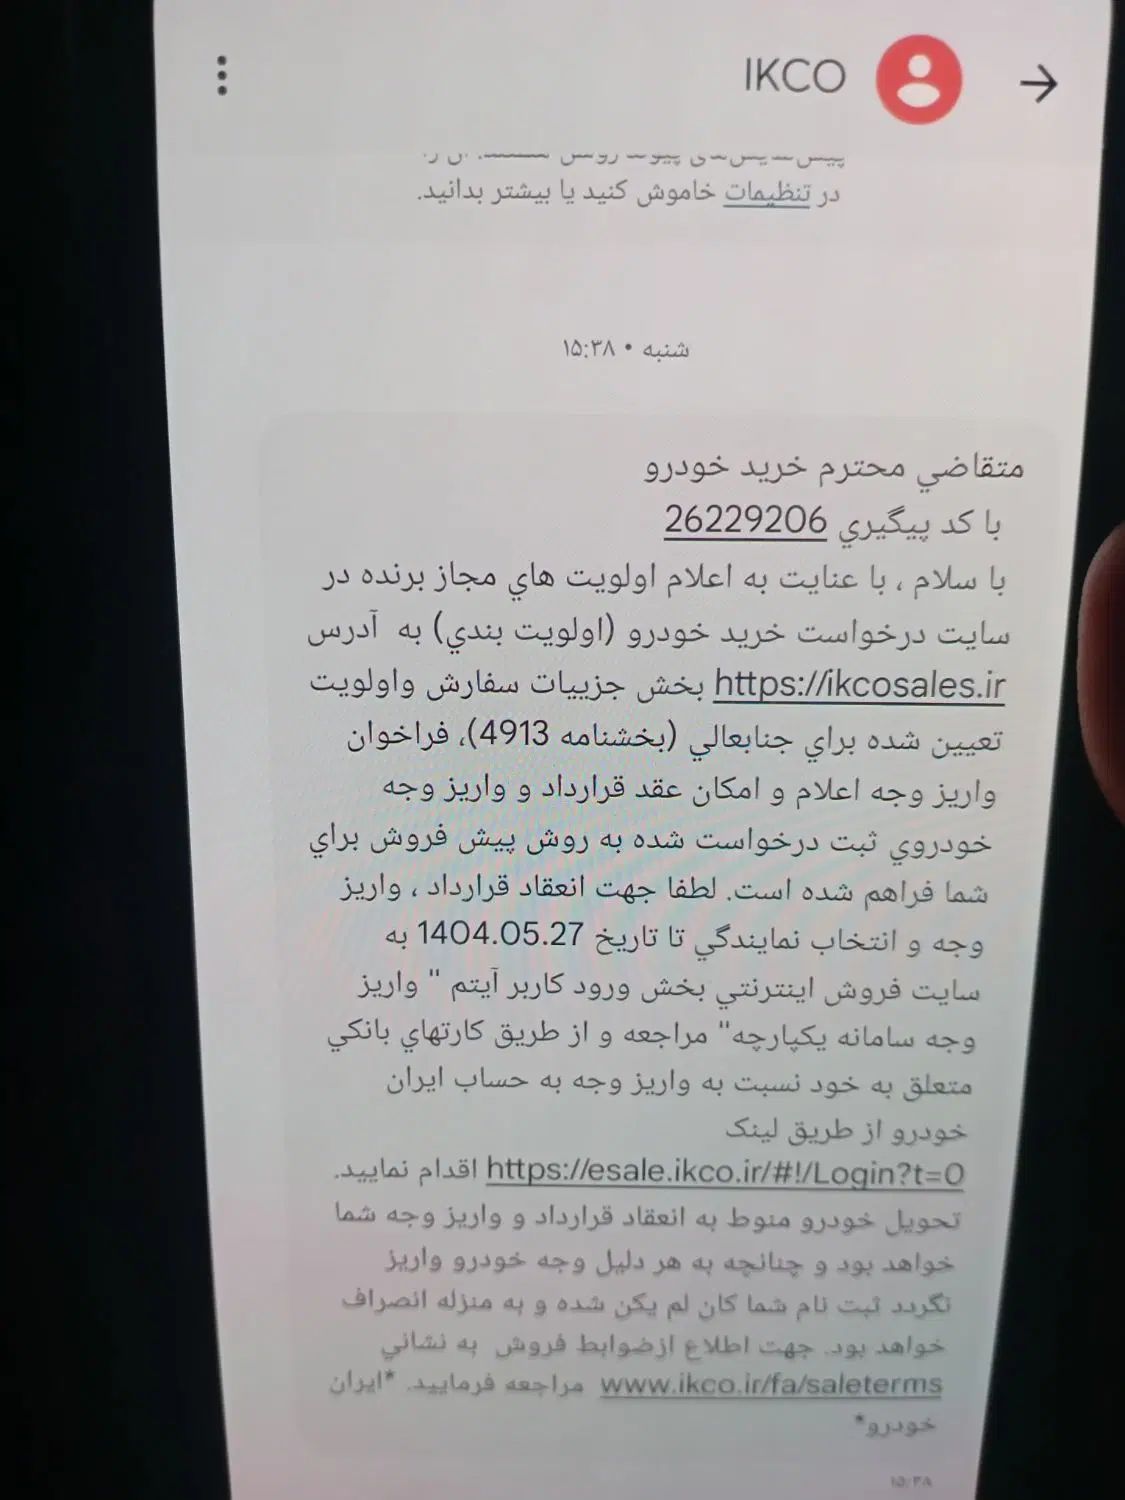 IKCO
پیش‌نمایش‌های پیوند روشن هستند. آن را
در تنظیمات خاموش کنید یا بیشتر بدانید.
شنبه • ۱۵:۳۸
متقاضي محترم خريد خودرو
با كد پيگيري 26229206
با سلام ، با عنايت به اعلام اولويت هاي مجاز برنده در
سايت درخواست خريد خودرو (اولويت بندي) به آدرس
https://ikcosales.ir بخش جزييات سفارش واولويت
تعيين شده براي جنابعالي (بخشنامه 4913)، فراخوان
واريز وجه اعلام و امكان عقد قرارداد و واريز وجه
خودروي ثبت درخواست شده به روش پيش فروش براي
شما فراهم شده است. لطفا جهت انعقاد قرارداد ، واريز
وجه و انتخاب نمايندگي تا تاريخ 1404.05.27 به
سايت فروش اينترنتي بخش ورود كاربر آيتم " واريز
وجه سامانه يكپارچه" مراجعه و از طريق كارتهاي بانكي
متعلق به خود نسبت به واريز وجه به حساب ايران
خودرو از طريق لينک
https://esale.ikco.ir/#!/Login?t=0 اقدام نماييد.
تحويل خودرو منوط به انعقاد قرارداد و واريز وجه شما
خواهد بود و چنانچه به هر دليل وجه خودرو واريز
نگردد ثبت نام شما كان لم يكن شده و به منزله انصراف
خواهد بود. جهت اطلاع ازضوابط فروش به نشاني
www.ikco.ir/fa/saleterms مراجعه فرماييد. *ايران
خودرو*
۱۵:۳۸